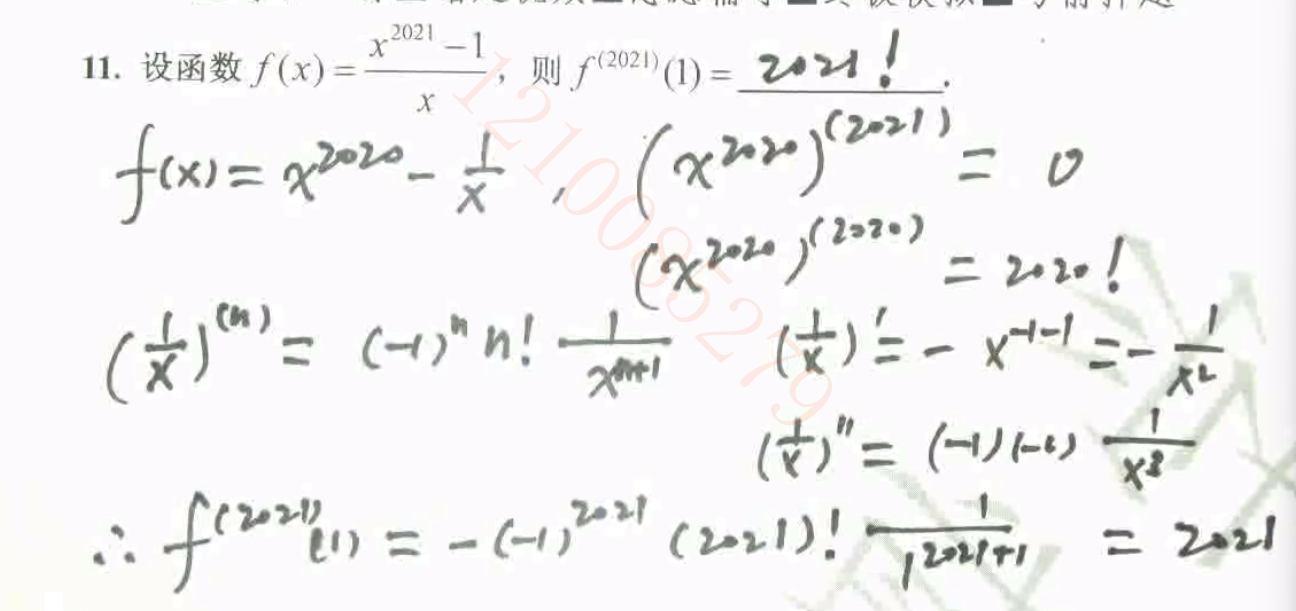 11. 设函数 f(x) = (x^2021 − 1)/x, 则 f^(2021)(1) = 2021!.
f(x) = x^2020 − 1/x , (x^2020)^(2021) = 0
(x^2020)^(2020) = 2020!
(1/x)^(n) = (−1)^n n! 1/x^(n+1) (1/x)' = − x^(−1−1) = − 1/x^2
(1/x)'' = (−1)(−2) 1/x^3
∴ f^(2021)(1) = −(−1)^2021 (2021)! 1/1^(2021+1) = 2021
1210085279